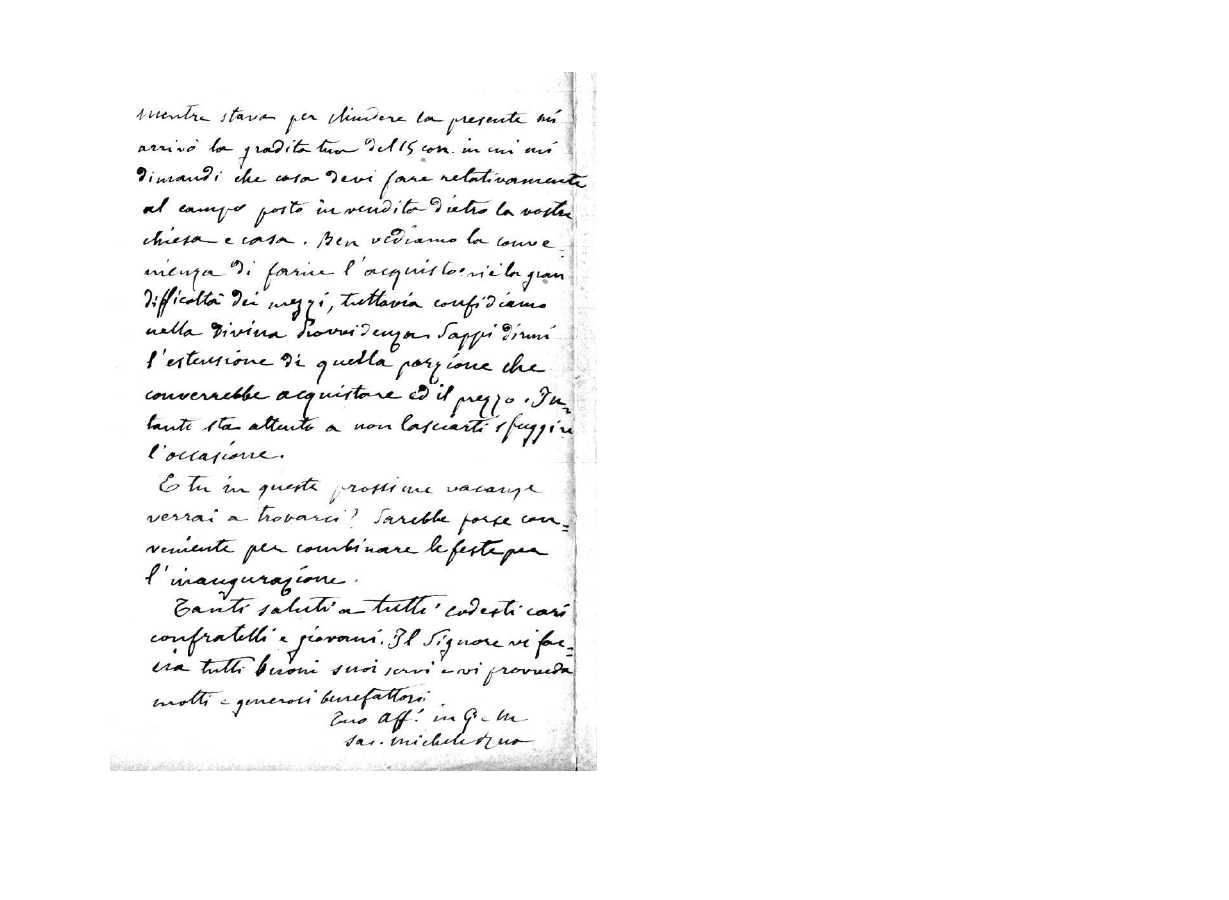 mentre stava per chiudere la presente mi
arrivò la gradita tua del 15 corr. in cui mi
dimandi che cosa devi fare relativamente
al campo posto in vendita dietro la vostra
chiesa e casa. Ben vediamo la conve-
nienza di farne l'acquisto: vi è la gran
difficoltà dei mezzi, tuttavia confidiamo
nella Divina Provvidenza. Sappi dirmi
l'estensione di quella porzione che
converrebbe acquistare ed il prezzo. In=
tanto sta attento a non lasciarti sfuggire
l'occasione.
E tu in queste prossime vacanze
verrai a trovarci? Sarebbe forse con=
veniente per combinare le feste per
l'inaugurazione.
Tanti saluti a tutti codesti cari
confratelli e giovani. Il Signore vi fac=
cia tutti buoni suoi servi e vi provveda
molti e generosi benefattori.
Tuo Aff. in G. e M.
Sac. Michele Rua